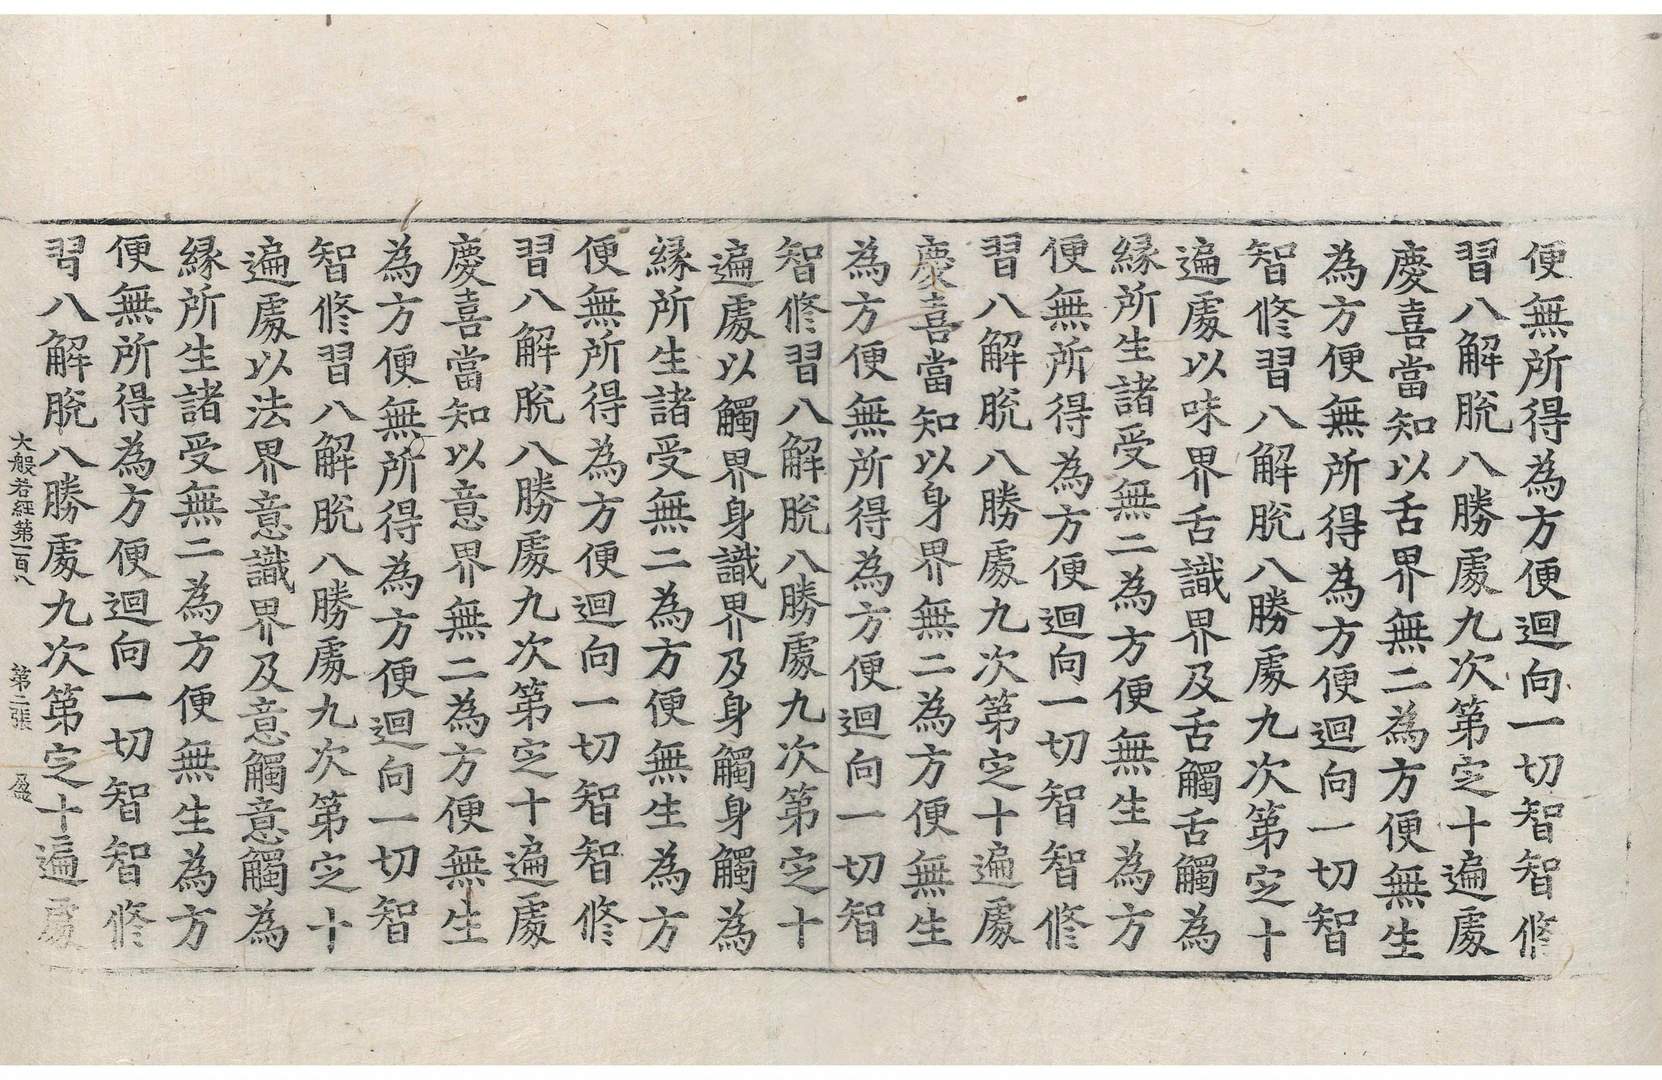 便無所得為方便迴向一切智智修
習八解脫八勝處九次第定十遍處
慶喜當知以舌界無二為方便無生
為方便無所得為方便迴向一切智
智修習八解脫八勝處九次第定十
遍處以味界舌識界及舌觸舌觸為
緣所生諸受無二為方便無生為方
便無所得為方便迴向一切智智修
習八解脫八勝處九次第定十遍處
慶喜當知以身界無二為方便無生
為方便無所得為方便迴向一切智
智修習八解脫八勝處九次第定十
遍處以觸界身識界及身觸身觸為
緣所生諸受無二為方便無生為方
便無所得為方便迴向一切智智修
習八解脫八勝處九次第定十遍處
慶喜當知以意界無二為方便無生
為方便無所得為方便迴向一切智
智修習八解脫八勝處九次第定十
遍處以法界意識界及意觸意觸為
緣所生諸受無二為方便無生為方
便無所得為方便迴向一切智智修
習八解脫八勝處九次第定十遍處
大般若經第一百八 第二張 盈